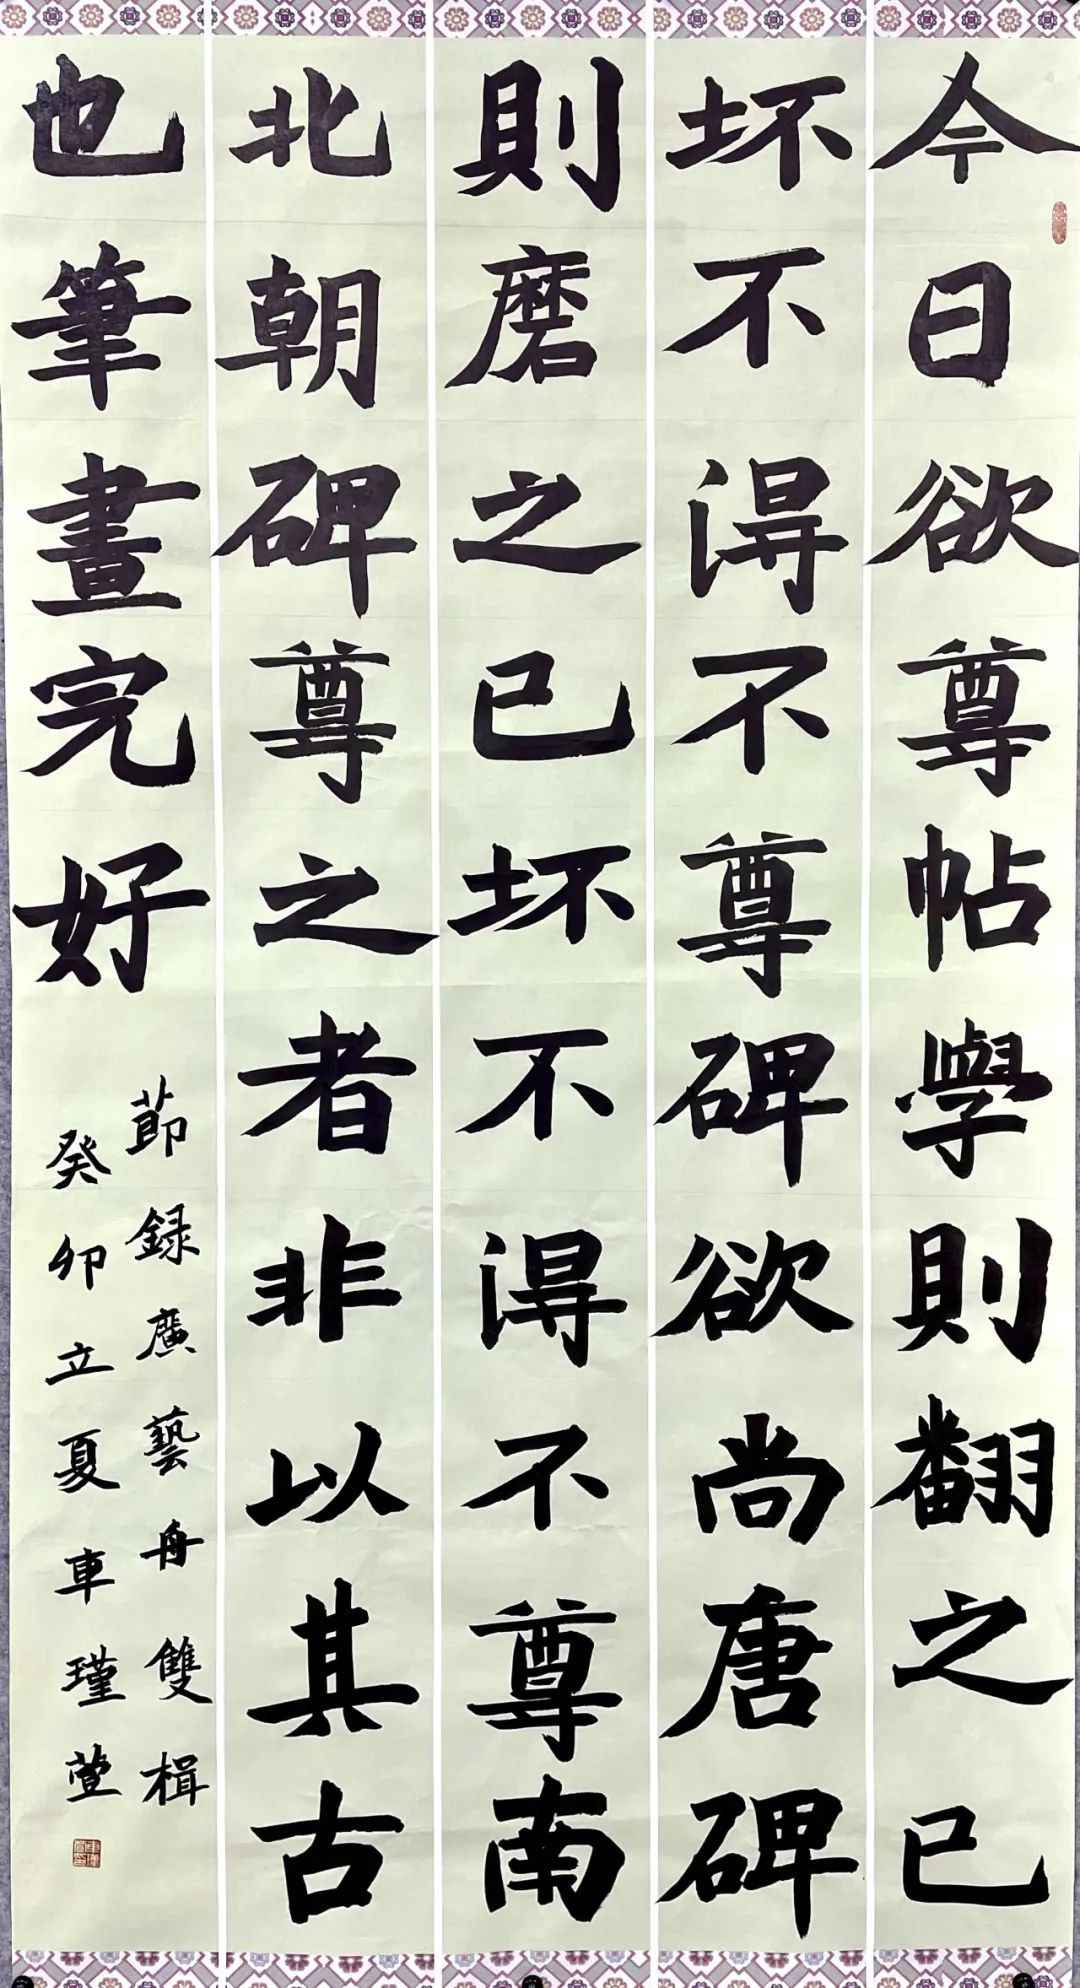 今日欲尊帖學則翻之已
坏不淂不尊碑欲尚唐碑
則磨之已坏不淂不尊南
北朝碑尊之者非以其古
也筆畫完好
節録廣藝舟雙楫
癸卯立夏車瑾萱